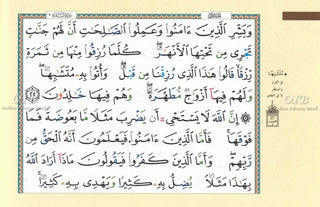 وَبَشِّرِ الَّذِينَ ءَامَنُوا وَعَمِلُوا الصَّٰلِحَٰتِ أَنَّ لَهُمْ جَنَّٰتٍ
تَجْرِى مِن تَحْتِهَا الْأَنْهَٰرُ كُلَّمَا رُزِقُوا مِنْهَا مِن ثَمَرَةٍ
رِّزْقًا قَالُوا هَٰذَا الَّذِى رُزِقْنَا مِن قَبْلُ وَأُتُوا بِهِ مُتَشَٰبِهًا
وَلَهُمْ فِيهَا أَزْوَٰجٌ مُّطَهَّرَةٌ وَهُمْ فِيهَا خَٰلِدُونَ ٢٥
إِنَّ اللَّهَ لَا يَسْتَحْىِ أَن يَضْرِبَ مَثَلًا مَّا بَعُوضَةً فَمَا
فَوْقَهَا فَأَمَّا الَّذِينَ ءَامَنُوا فَيَعْلَمُونَ أَنَّهُ الْحَقُّ مِن
رَّبِّهِمْ وَأَمَّا الَّذِينَ كَفَرُوا فَيَقُولُونَ مَاذَا أَرَادَ اللَّهُ
بِهَٰذَا مَثَلًا يُضِلُّ بِهِ كَثِيرًا وَيَهْدِى بِهِ كَثِيرًا
مُتَشَٰبِهًا